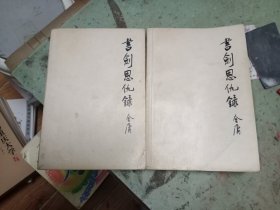 書劍恩仇錄
金庸
書劍恩仇錄
金庸